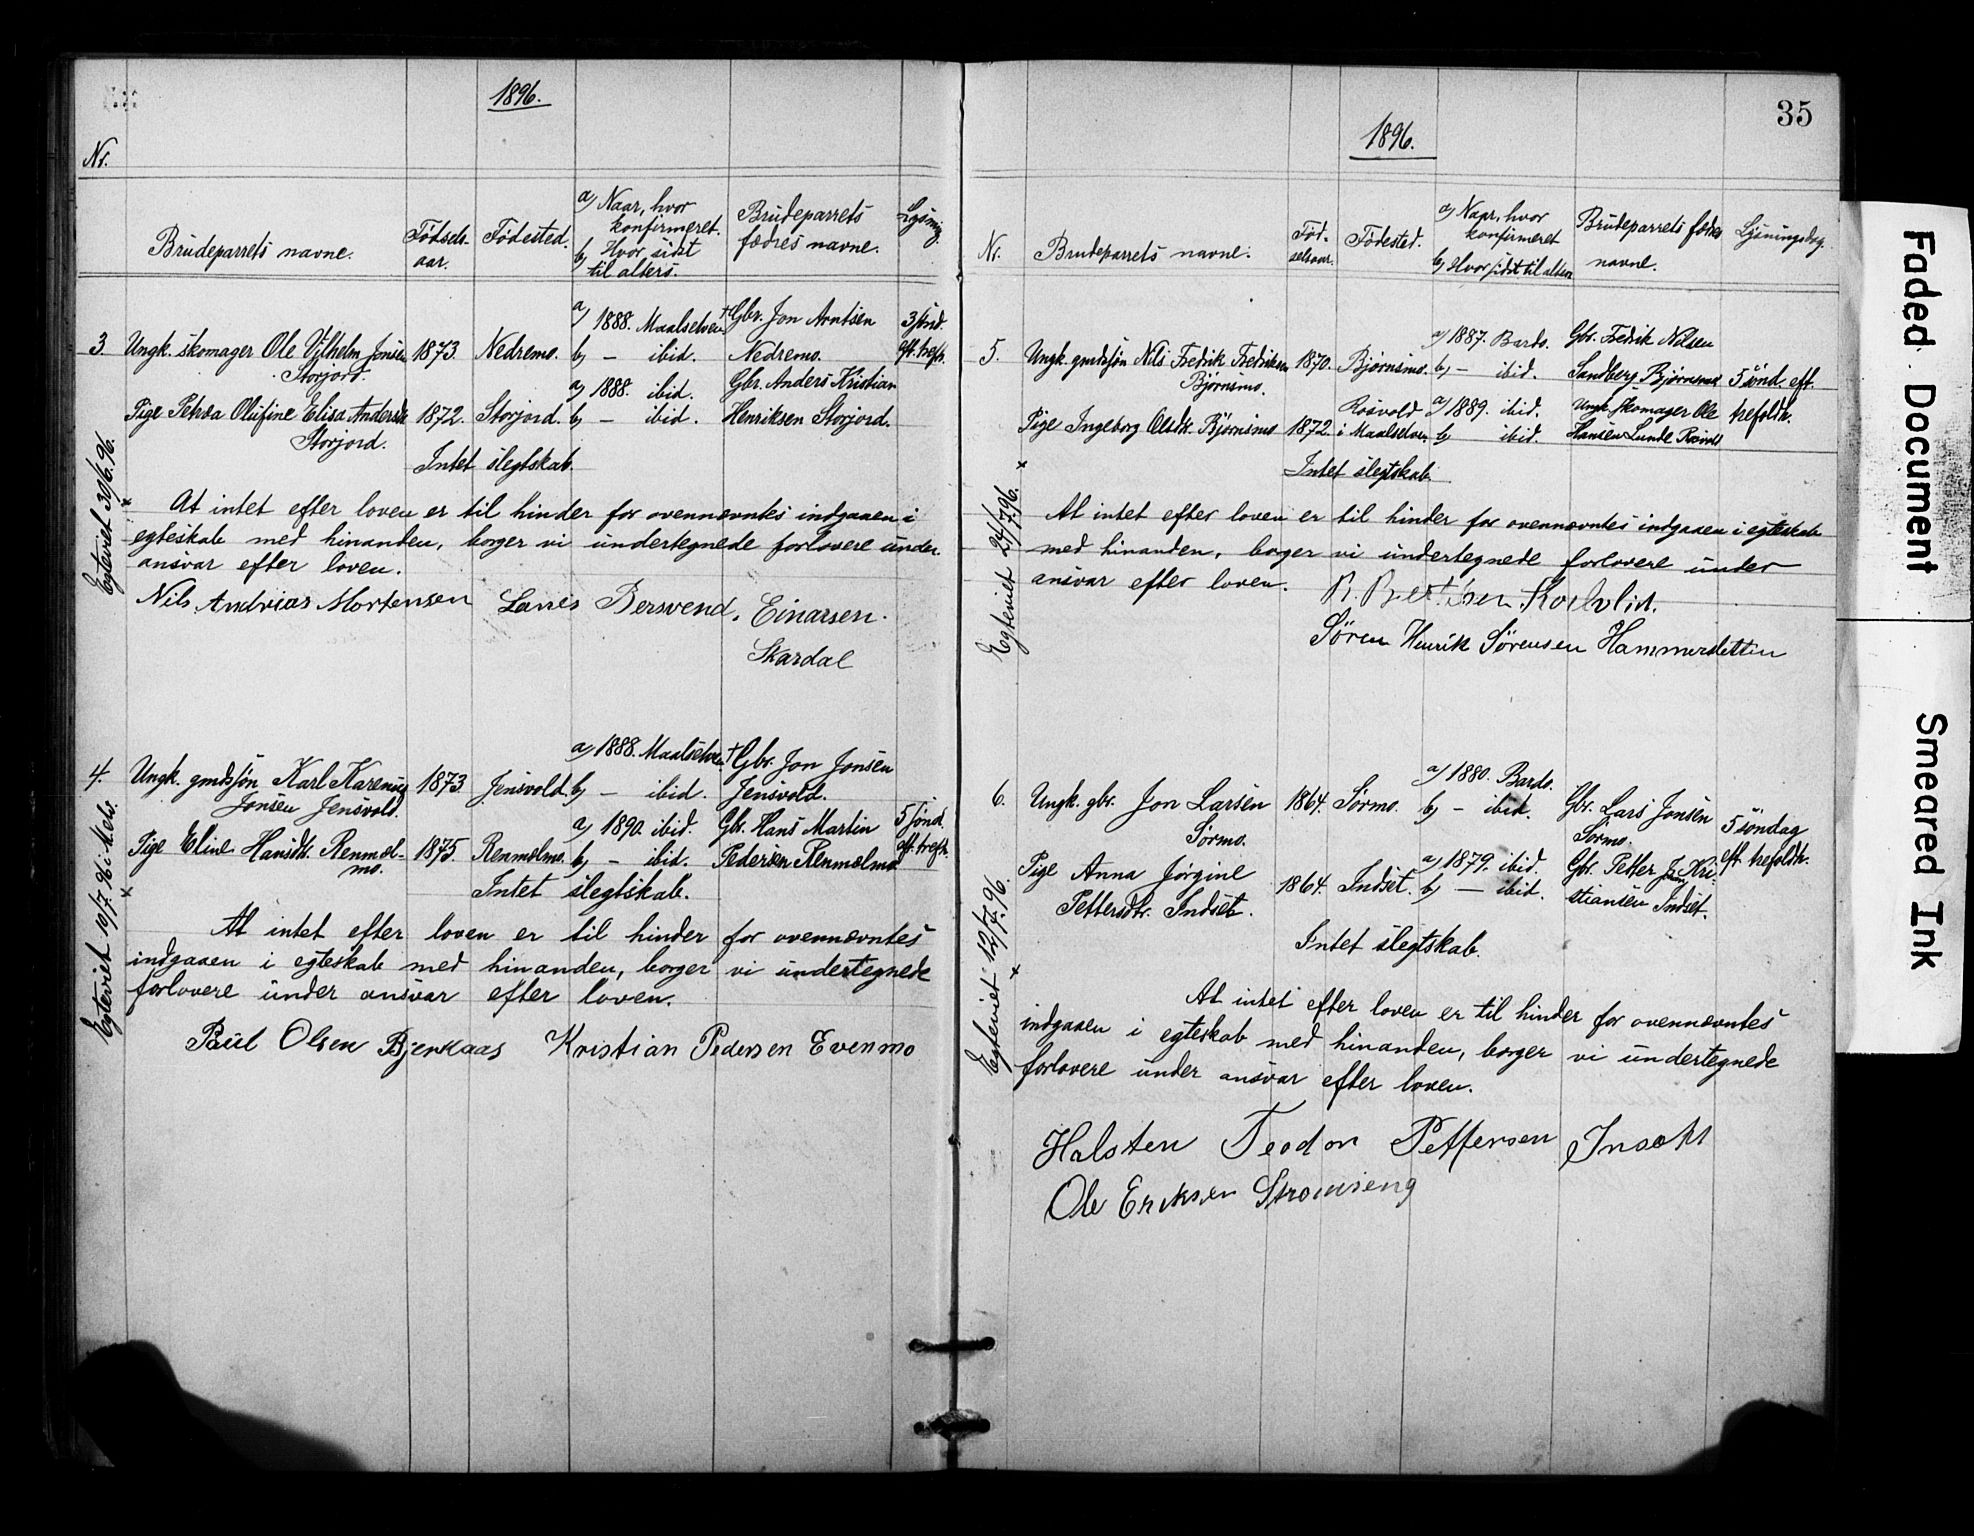 1896.
Nr.
Brudeparrets navne.
Fødsels-
aar.
Fødested.
a) Naar, hvor
konfirmeret.
b) Hvor sidst
til alters.
Brudeparrets
fædres navne.
Lysning.
3. Ungk. skomager Ole Vilhelm Jonsen 1873. Nedremo. a) 1888. Maalselven † Gbr. Jon Arntsen 3 sønd.
Storjord. b) — ibid. Nedremo. eft. trefh.
Pige Petrea Olufine Elisa Andersdt. 1872. Storjord. a) 1888. ibid. Gbr. Anders Kristian
Storjord. b) — ibid. Henriksen Storjord.
Intet slegtskab.
Egteviet 30/6.96.
At intet efter loven er til hinder for ovennævntes indgaaen i
egteskab med hinanden, borger vi undertegnede forlovere under
ansvar efter loven.
Nils Andrias Mortensen Bersvend Einarsen
Skardal
4. Ungk. gmdssøn Karl Karenius 1873 Jensvold. a) 1888. Maalselven † Gbr. Jon Jonsen
Jonsen Jensvold. b) — ibid. Jensvold.
Pige Eline Hansdt. Renmæl- 1875. Renmælmo. a) 1890. ibid. Gbr. Hans Martin 5 sønd.
mo. b) — ibid. Pedersen Renmælmo eft. trefh.
Intet slegtskab.
Egteviet 10/7.96 i Mels.
At intet efter loven er til hinder for ovennævntes
indgaaen i egteskab med hinanden, borger vi undertegnede
forlovere under ansvar efter loven.
Paul Olsen Bjerkaas Kristian Pedersen Evenmo
35
1896.
Nr.
Brudeparrets navne.
Fød-
selsaar.
Fødested.
a) Naar, hvor
konfirmeret
b) Hvor sidst til alters.
Brudeparrets fædres
navne.
Lysningsdag.
5. Ungk. gmdssøn Nils Fredrik Fredriksen 1870. Bjørnsmo. a) 1887. Bardo. Gbr. Fredrik Nilsen
Bjørnsmo. b) — ibid. Sandberg Bjørnsmo 5 sønd. eft.
Pige Ingeborg Olsdt. Bjørnsmo 1872. Rosvold i Maalselven a) 1889. ibid. Ungk. skomager Ole trefoldh.
b) ibid. Hansen Lunde
Intet slegtskab.
Egteviet 24/7.96.
At intet efter loven er til hinder for ovennævntes indgaaen i egteskab
med hinanden, borger vi undertegnede forlovere under
ansvar efter loven.
Søren Henrik Sørensen
6. Ungk. gbr. Jon Larsen 1864. Sørmo. a) 1880. Bardo. Gbr. Lars Jonsen 5 søndag
Sørmo. b) — ibid. Sørmo. eft. trefoldh.
Pige Anna Jørgine 1864. Indset. a) 1879. ibid. Gbr. Petter Kri-
Pettersdtr. Indset. b) — ibid. stiansen Indset.
Intet slegtskab.
Egteviet 12/7.96.
At intet efter loven er til hinder for ovennævntes
indgaaen i egteskab med hinanden, borger vi undertegnede
forlovere under ansvar efter loven.
Halsten Teodor Pettersen Insett
Ole Eriksen Strømseng
Faded Document
Smeared Ink